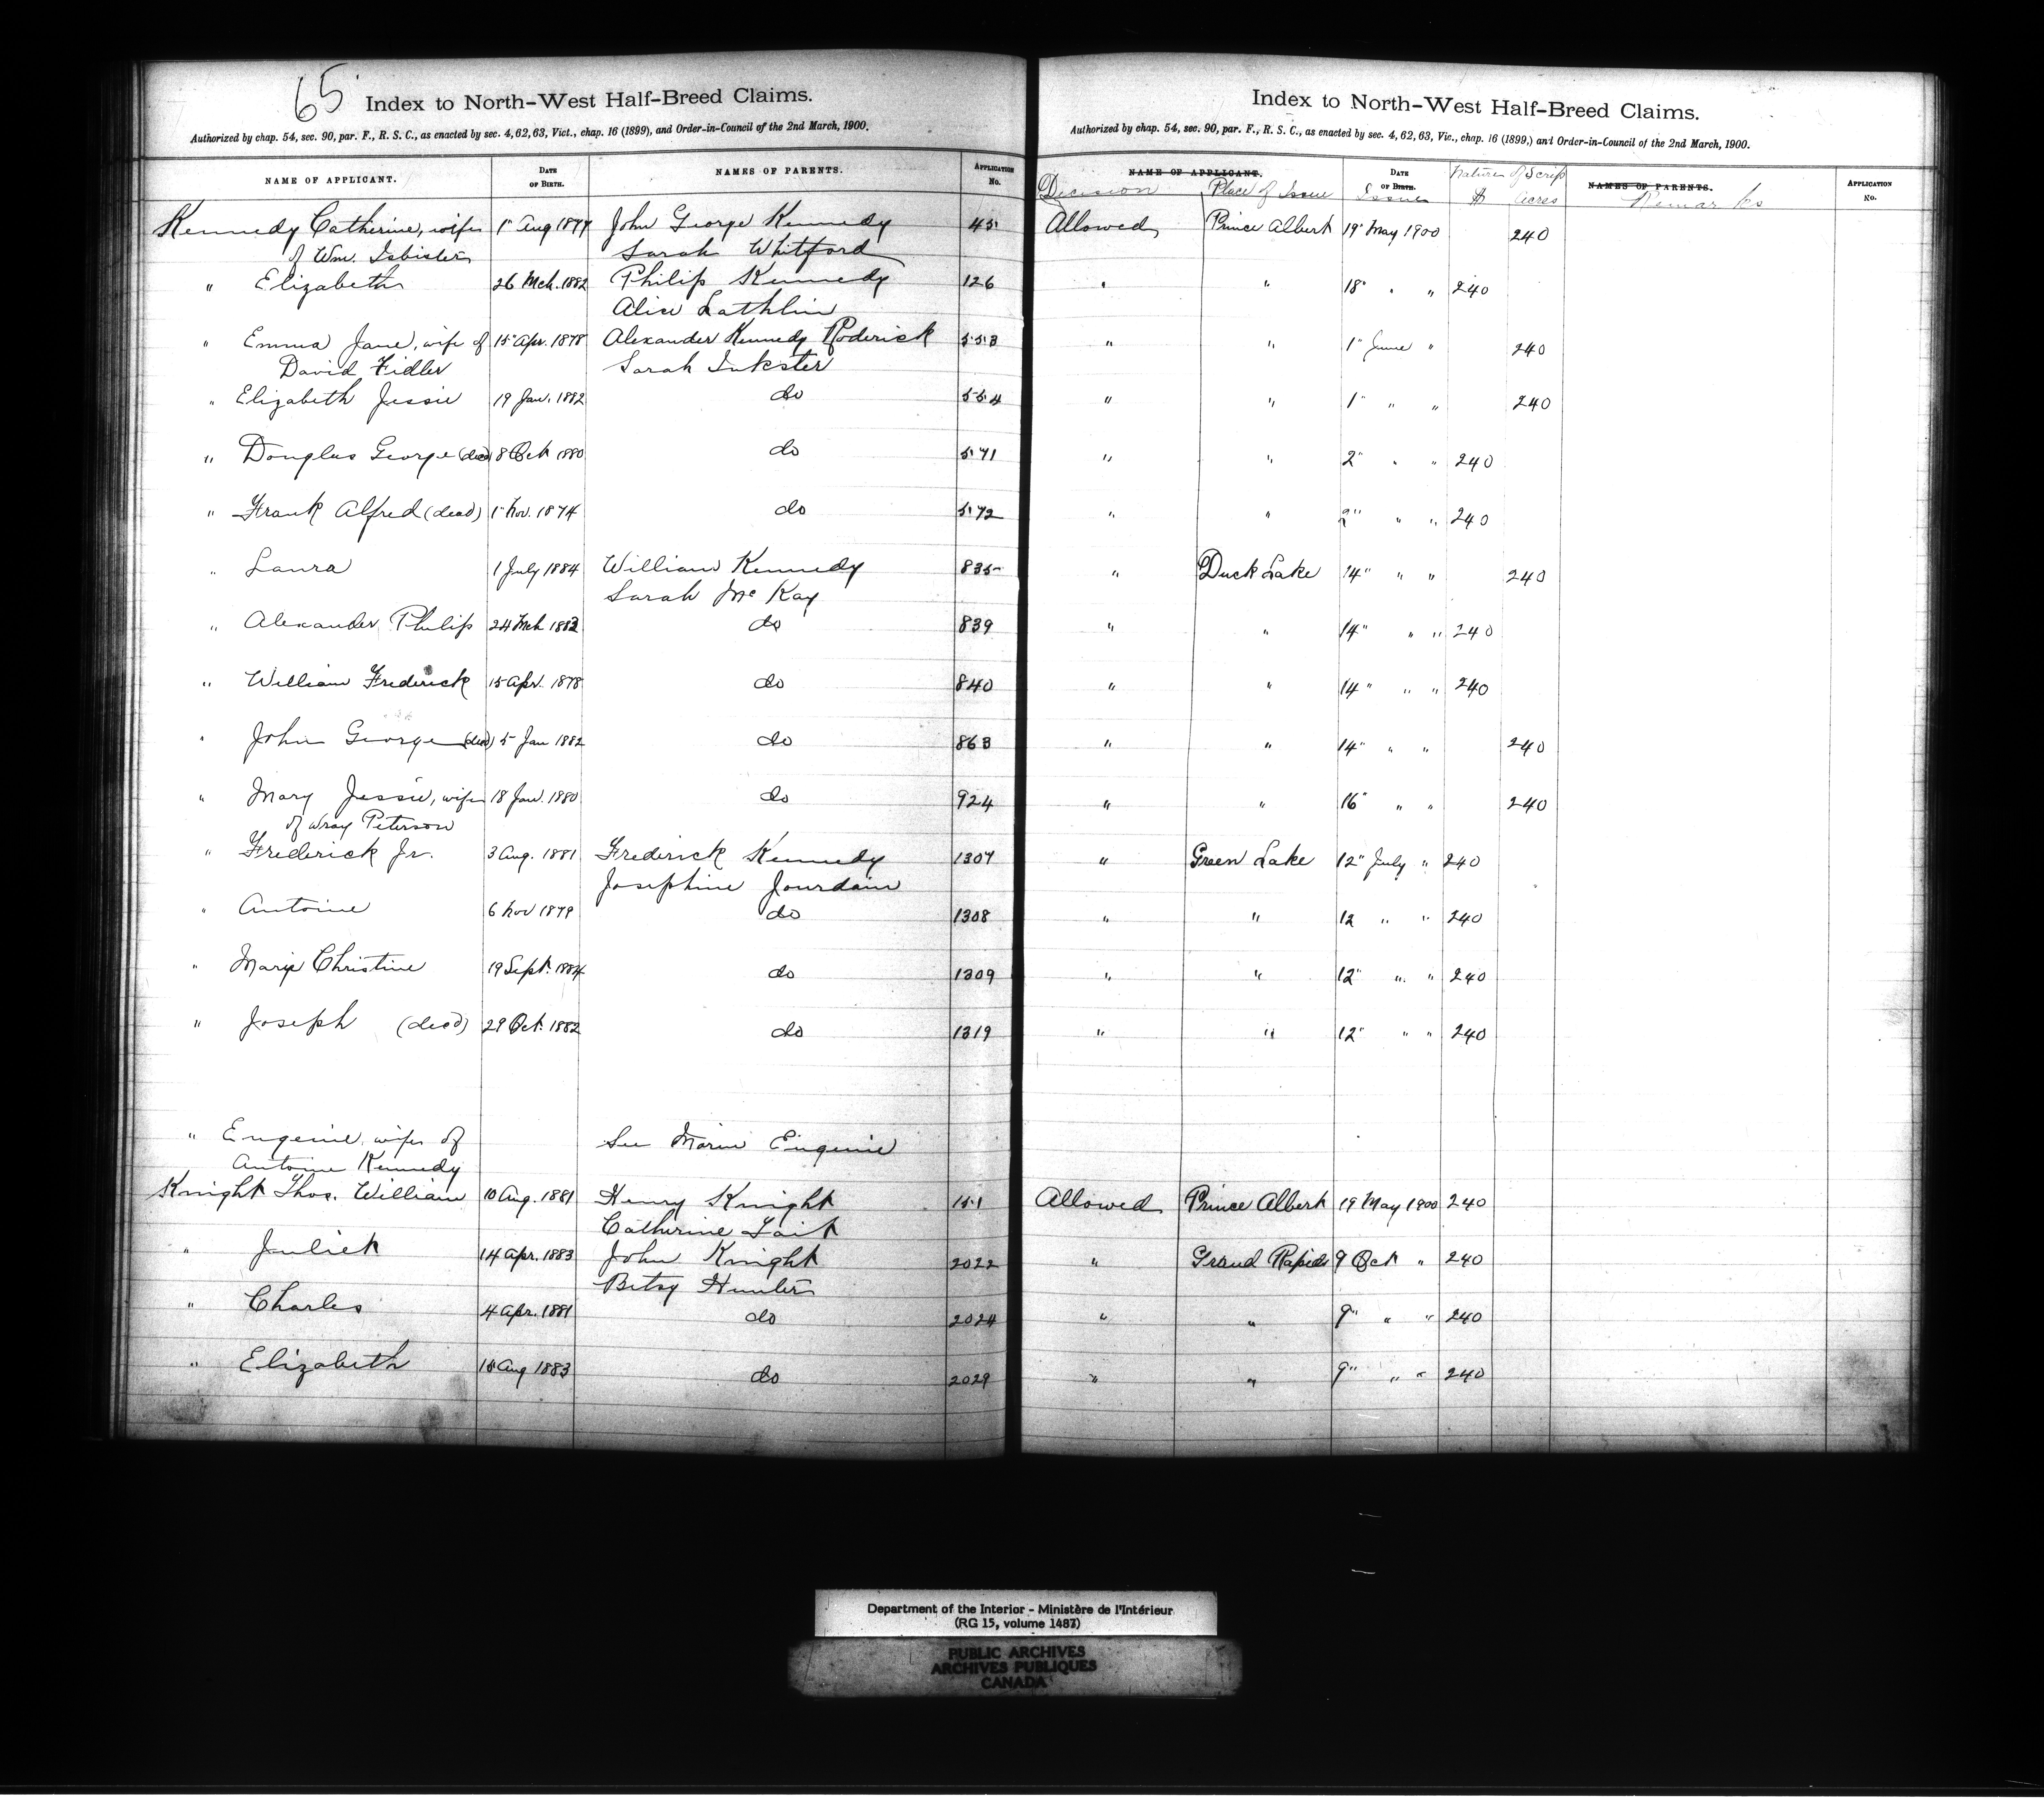 65
Index to North-West Half-Breed Claims.
Authorized by chap. 54, sec. 90, par. F., R. S. C., as enacted by sec. 4, 62, 63, Vict., chap. 16 (1899), and Order-in-Council of the 2nd March, 1900.
NAME OF APPLICANT. DATE OF BIRTH. NAMES OF PARENTS. APPLICATION No.
Kennedy Catherine, wife 1" Aug 1877 John George Kennedy 45
of Wm. Isbister Sarah Whitford
" Elizabeth 26 Mch. 1882 Philip Kennedy 126
Alice Lathlin
" Emma Jane, wife of 15" Apr. 1878 Alexander Kennedy Roderick 553
David Fidler Sarah Inkster
" Elizabeth Jessie 19 Jan. 1882 do 554
" Douglas George (dead) 8 Oct 1880 do 571
" Frank Alfred (dead) 1" Nov. 1874 do 572
" Laura 1 July 1884 William Kennedy 835
Sarah McKay
" Alexander Philip 24 Mch 1883 do 839
" William Frederick 15 Apr. 1878 do 840
" John George (dead) 5 Jan 1882 do 863
" Mary Jessie, wife 18 Jan. 1880 do 924
of Wray Peterson
" Frederick Jr. 3 Aug. 1881 Frederick Kennedy 1307
Josephine Jourdain
" Antoine 6 Nov 1879 do 1308
" Marie Christine 19 Sept. 1884 do 1309
" Joseph (dead) 29 Oct. 1882 do 1319
" Eugenie, wife of See Marie Eugenie
Antoine Kennedy
Knight Thos. William 10 Aug. 1881 Henry Knight 151
Catherine Tait
" Juliet 14 Apr. 1883 John Knight 2022
Betsy Hunter
" Charles 4 Apr. 1881 do 2024
" Elizabeth 15 Aug 1883 do 2029
Index to North-West Half-Breed Claims.
Authorized by chap. 54, sec. 90, par. F., R. S. C., as enacted by sec. 4, 62, 63, Vic., chap. 16 (1899,) and Order-in-Council of the 2nd March, 1900.
NAME OF APPLICANT. DATE OF BIRTH. Nature of Scrip NAMES OF PARENTS. APPLICATION No.
Decision Place of Issue Issue $ Acres Remarks
Allowed Prince Albert 19" May 1900 240
" " 18" " " 240
" " 1" June " 240
" " 1" " " 240
" " 2" " " 240
" " 2" " " 240
" Duck Lake 14" " " 240
" " 14" " " 240
" " 14" " " 240
" " 14" " " 240
" " 16" " " 240
" Green Lake 12" July " 240
" " 12 " " 240
" " 12" " " 240
" " 12" " " 240
Allowed Prince Albert 19 May 1900 240
" Grand Rapids 9 Oct " 240
" " 9" " " 240
" " 9" " " 240
Department of the Interior - Ministère de l'Intérieur
(RG 15, volume 1487)
PUBLIC ARCHIVES
ARCHIVES PUBLIQUES
CANADA